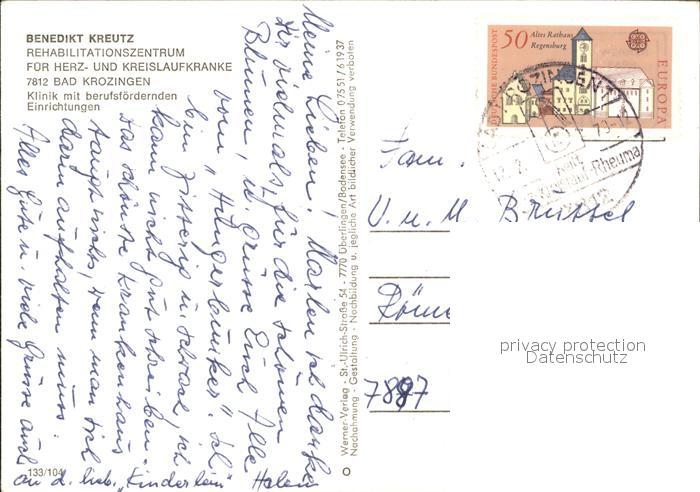 BENEDIKT KREUTZ
REHABILITATIONSZENTRUM
FÜR HERZ- UND KREISLAUFKRANKE
7812 BAD KROZINGEN
Klinik mit berufsfördernden
Einrichtungen
Meine Lieben! Marlen ich danke
Dir vielmals, für die schönen
Blumen, u. grüsse Euch Alle
vom "Hungerbunker". Ich
bin zitterig u. schwach, ich
kann nicht gut schreiben.
Das schönste Krankenhaus
taugt nichts, wenn man sich
darin aufhalten muss.
Alles Gute u. viele Grüsse auch
an d. lieb. "Kinderlein"
133/104
Werner-Verlag - St.-Ulrich-Straße 54 - 7770 Überlingen/Bodensee - Telefon 07551/61937
Nachahmung - Gestaltung - Nachbildung u. jegliche Art bildlicher Verwendung verboten
50 Altes Rathaus
Regensburg
DEUTSCHE BUNDESPOST
EUROPA
Fam.
U. u. M. Brüssel
7887
privacy protection
Datenschutz